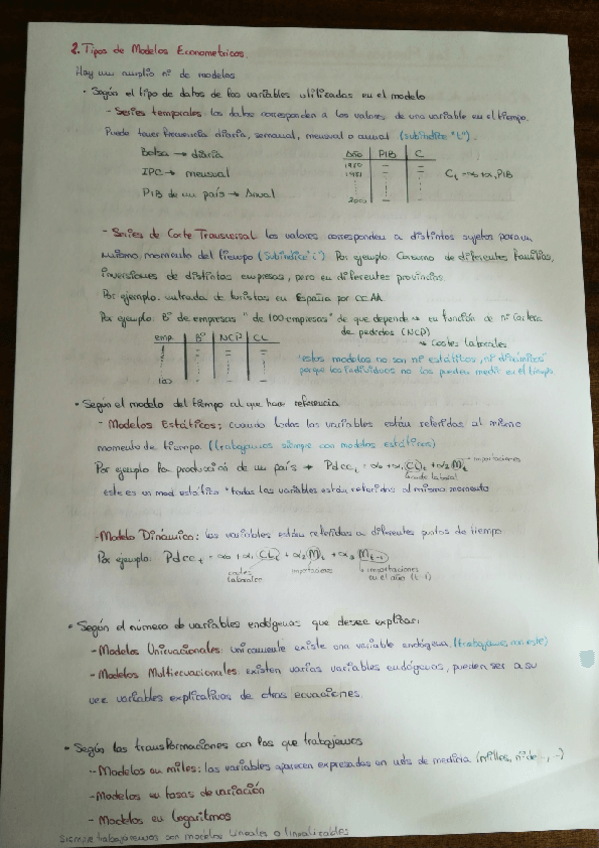 2. Tipos de Modelos Econometricos.
Hay un amplio nº de modelos
• Según el tipo de datos de las variables utilizadas en el modelo
- Series temporales: los datos corresponden a los valores de una variable en el tiempo.
Puede tener frecuencia diaria, semanal, mensual o anual (subíndice "t").
Bolsa → diaria
IPC → mensual
PIB de un país → Anual
Año | PIB | C
1980
1981
Ct = α0 + α1 PIB
- Series de Corte Transversal: los valores corresponden a distintos sujetos para un
mismo, momento del tiempo (subíndice "i"). Por ejemplo: Consumo de diferentes familias,
inversiones de distintas empresas, pero en diferentes provincias.
Por ejemplo: entrada de turistas en España por CCAA
Por ejemplo: Bº de empresas "de 100 empresas" de que depende → en función de nº cartera
de pedidos (NCP)
→ costes laborales
emp. | Bº | NCP | CL
1
100
estos modelos no son ni estáticos, ni dinámicos
porque los individuos no los pueden medir en el tiempo.
• Según el modelo del tiempo al que hace referencia
- Modelos Estáticos: cuando todas las variables están referidas al mismo
momento de tiempo. (trabajamos siempre con modelos estáticos)
Por ejemplo la producción de un país → Pdcct = α0 + α1 CLt + α2 Mt → importaciones
coste laboral
este es un mod. estático "todas las variables están referidas al mismo momento
- Modelo Dinámico: las variables están referidas a diferentes puntos de tiempo
Por ejemplo: Pdcct = α0 + α1 CLt + α2 Mt + α3 Mt-1
costes laborales
importaciones
importaciones en el año (t-1)
• Según el número de variables endógenas que desee explicar:
- Modelos Uniecuacionales: unicamente existe una variable endógena. (trabajamos con este)
- Modelos Multiecuacionales: existen varias variables endógenas, pueden ser a su
vez variables explicativas de otras ecuaciones.
• Según las transformaciones con las que trabajemos
- Modelos en niveles: las variables aparecen expresadas en uds de medida (millones, nº de -, -)
- Modelos en tasas de variación
- Modelos en logaritmos
Siempre trabajaremos con modelos lineales o linealizables